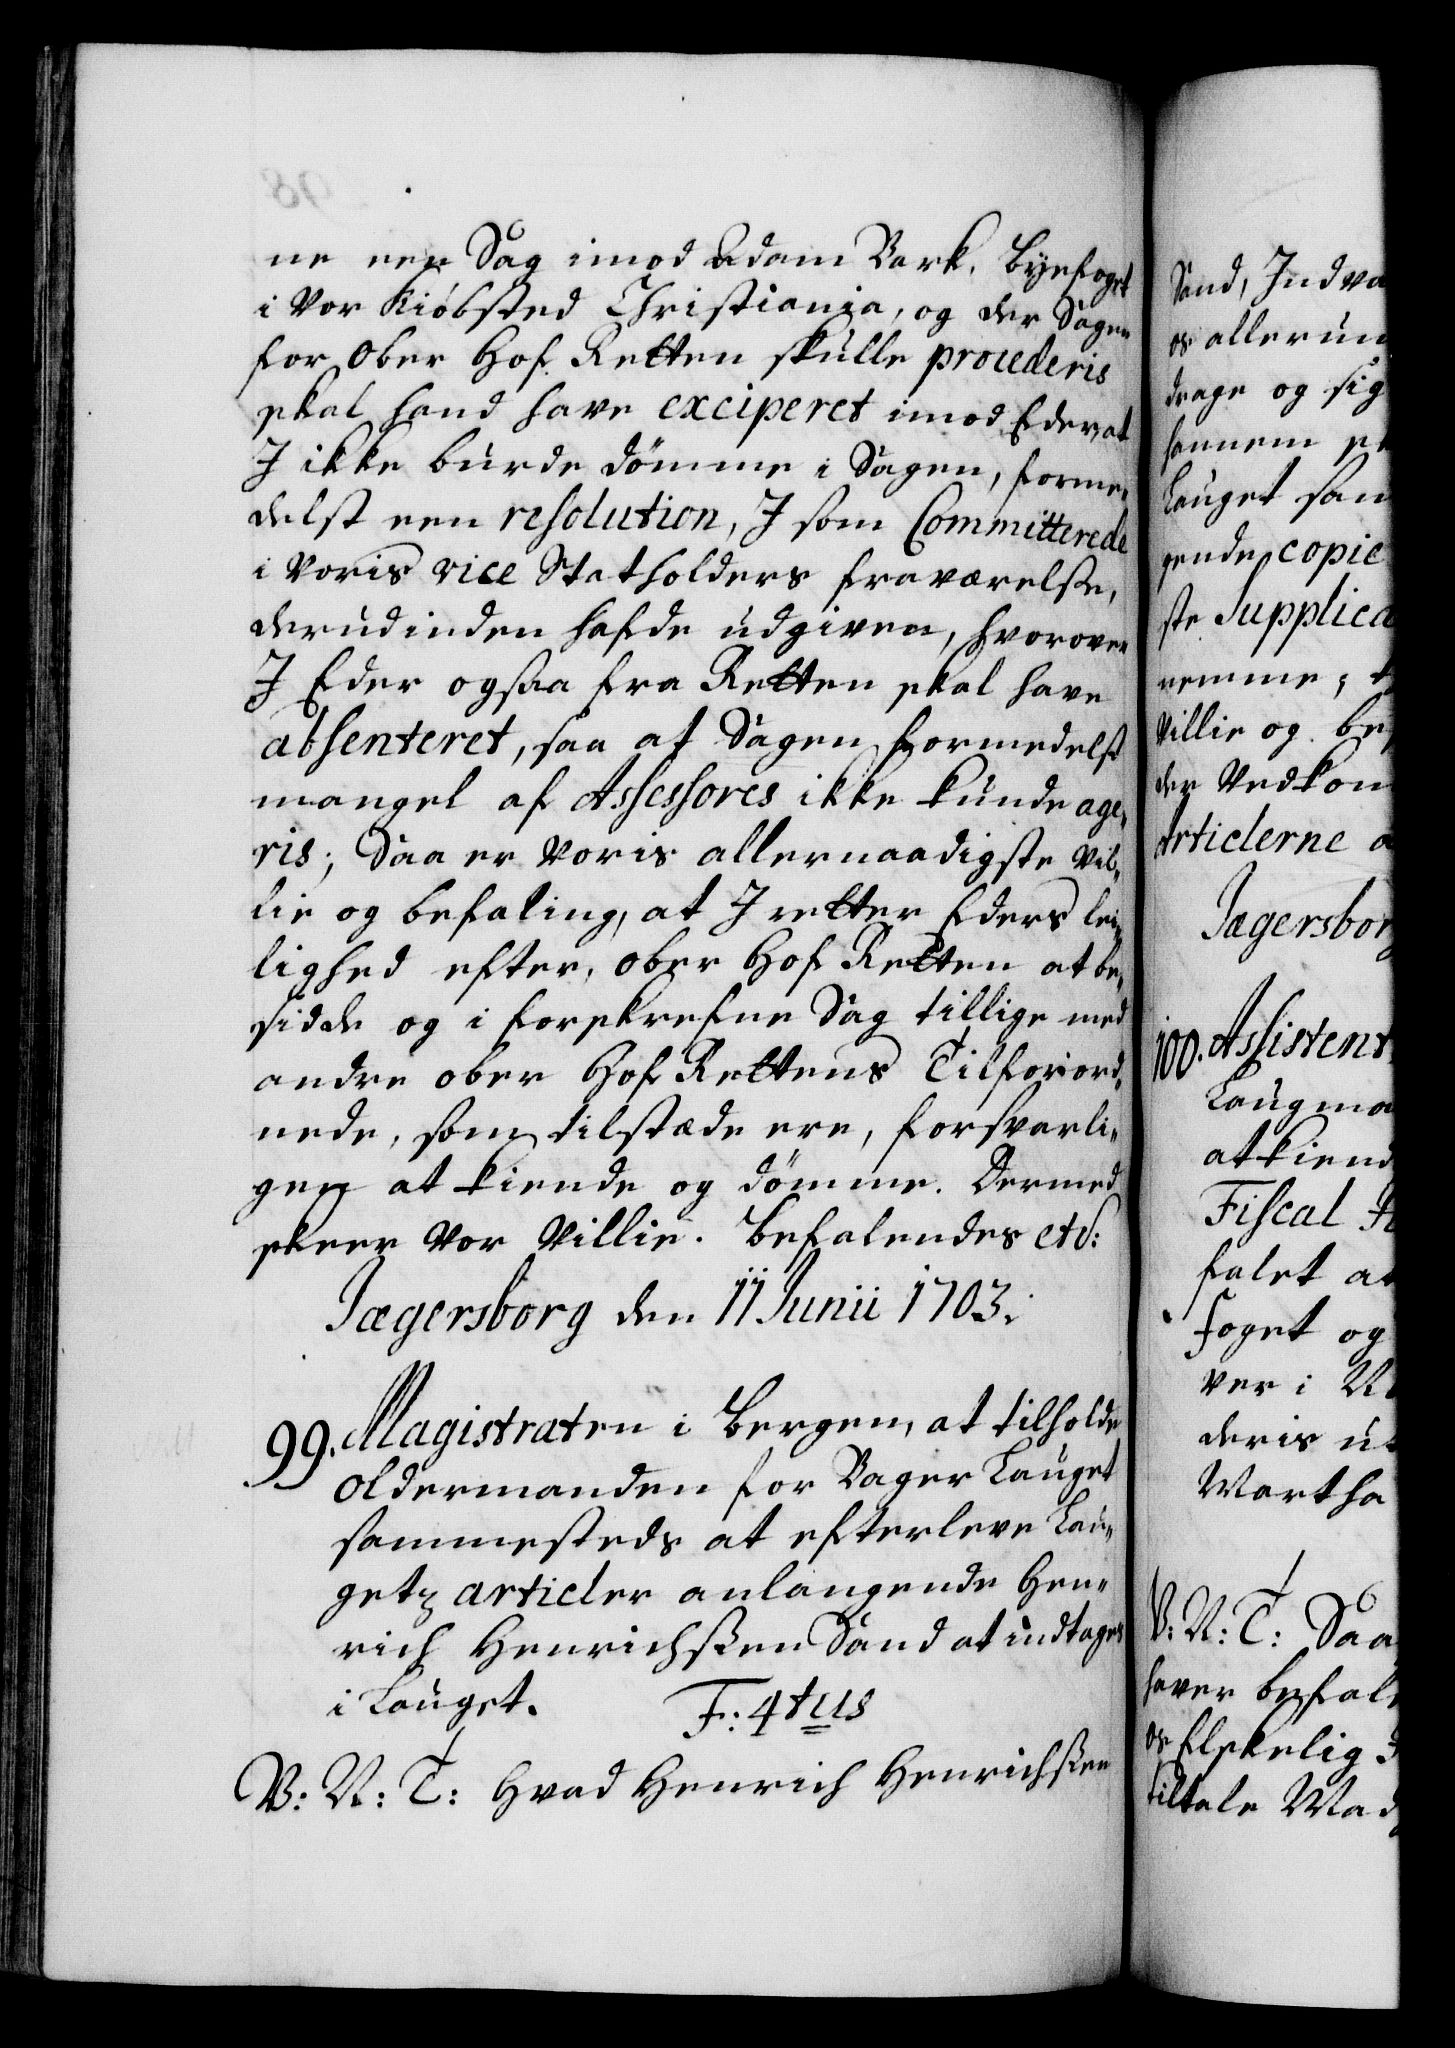 ne een Sag imod Adam Bark, Byefoget
i Vor Kiöbsted Christiania, og der Sagen
for Ober Hof Retten skulle procederis
skal hand have exciperet imod Eder at
J ikke burde dömme i Sagen, forme„
delst een resolution, J som Committerede
i Voris vice Statholders fraværelse,
derudinden hafde udgiven, hvorover
J Eder ogsaa fra Retten skal have
absenteret, saa at Sagen formedelst
mangel af Assessores ikke kunde age„
ris; Saa er Voris allernaadigste Vil„
lie og befaling, at J retter Eders lei„
lighed efter, Ober Hof Retten at be„
sidde og i forskrefne Sag tillige med
andre Ober Hof Rettens Tilforord„
nede, som tilstæde ere, forsvarli„
gen at kiende og dömme. Dermed
skeer Vor Villie. Befalendes etc:
Jægersborg den 11 Junii 1703.
99. Magistraten i Bergen, at tilholde
Oldermanden for Bager Lauget
sammesteds at efterleve Lau„
getz articler anlangende Hen„
rich Henrichssen Sand at indtages
i Lauget. F: 4tus
V: N: T: Hvad Henrich Henrichssen
Sand, Indva
os allerun
drage og sig
hannem
Lauget sam
gende copie
ste Supplica
nemme;
Villie og be
der Vedkom
Articlerne a
Jægersborg
100. Assistent
Laugma
at kiend
Fiscal
falet at
foget og
ver i
deris
Martha
V: N: T: Saa
haver befal
os Elskelig
tiltale Mad